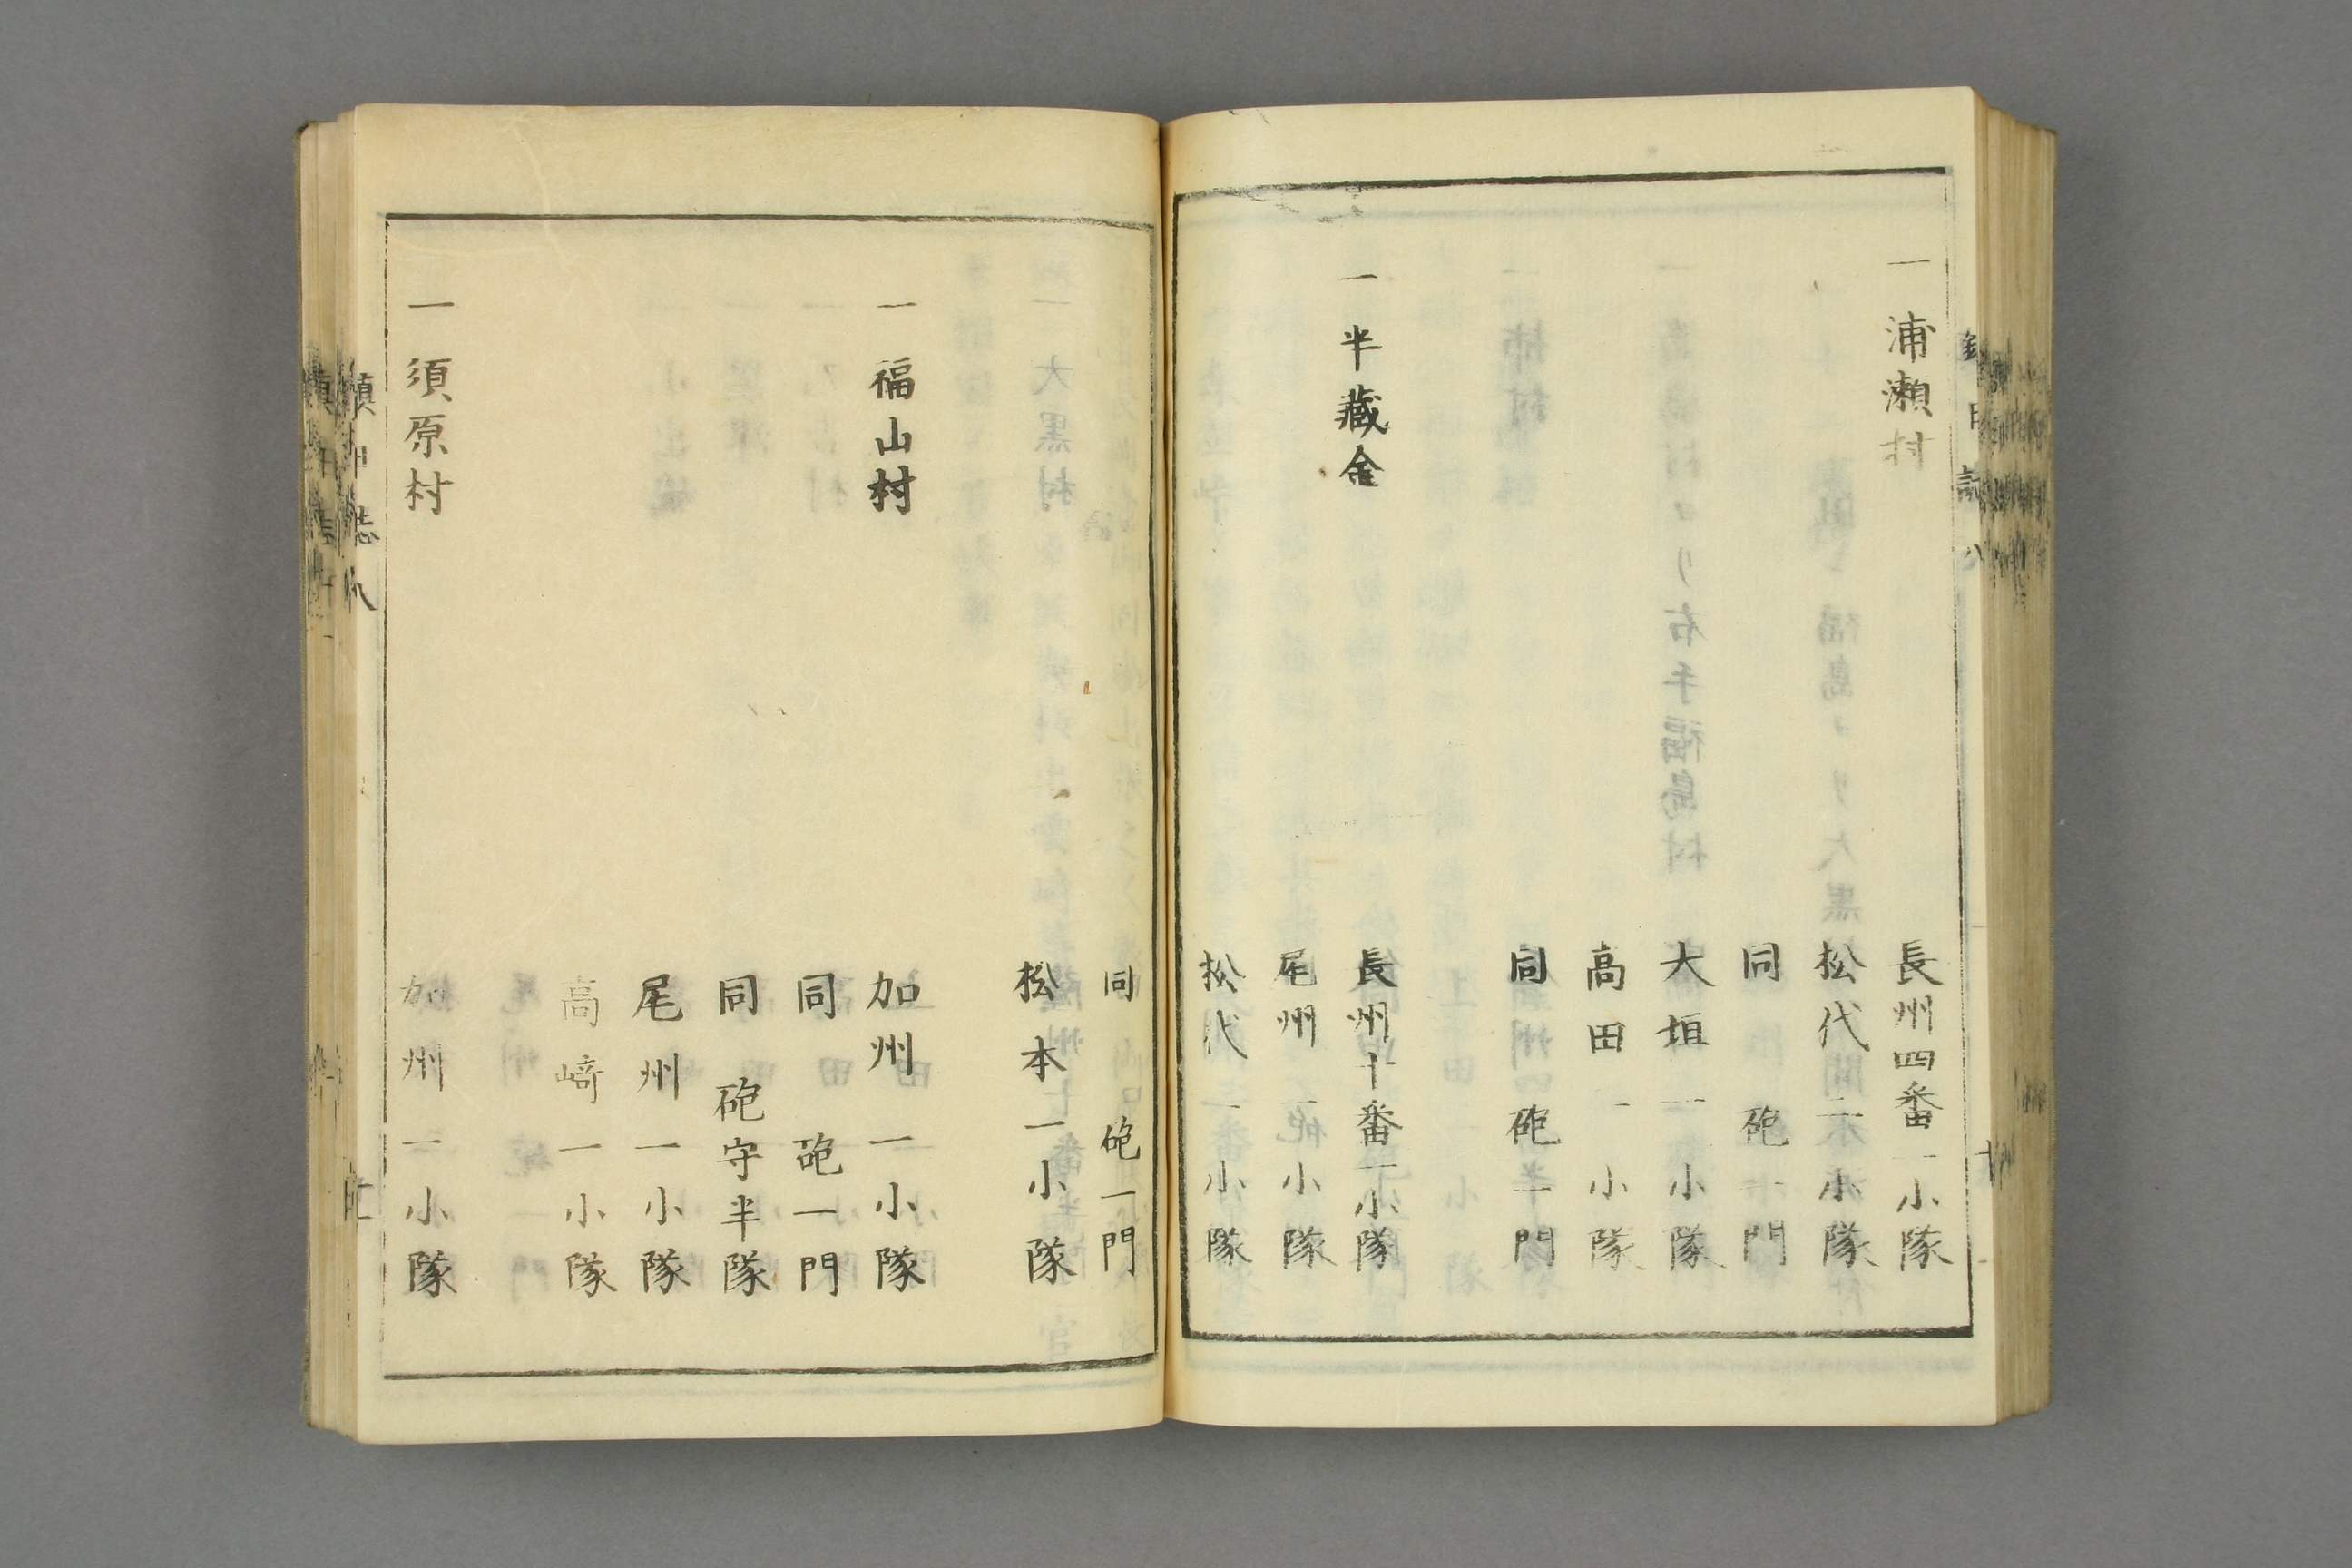 一 浦瀬村
長州四番一小隊
松代二小隊
同 砲一門
大垣一小隊
高田一小隊
同 砲一門
一 半藏金
長州十番一小隊
尾州一小隊
松代一小隊
同 砲一門
松本一小隊
一 福山村
加州一小隊
同 砲一門
同 砲守半隊
尾州一小隊
高﨑一小隊
一 須原村
加州二小隊